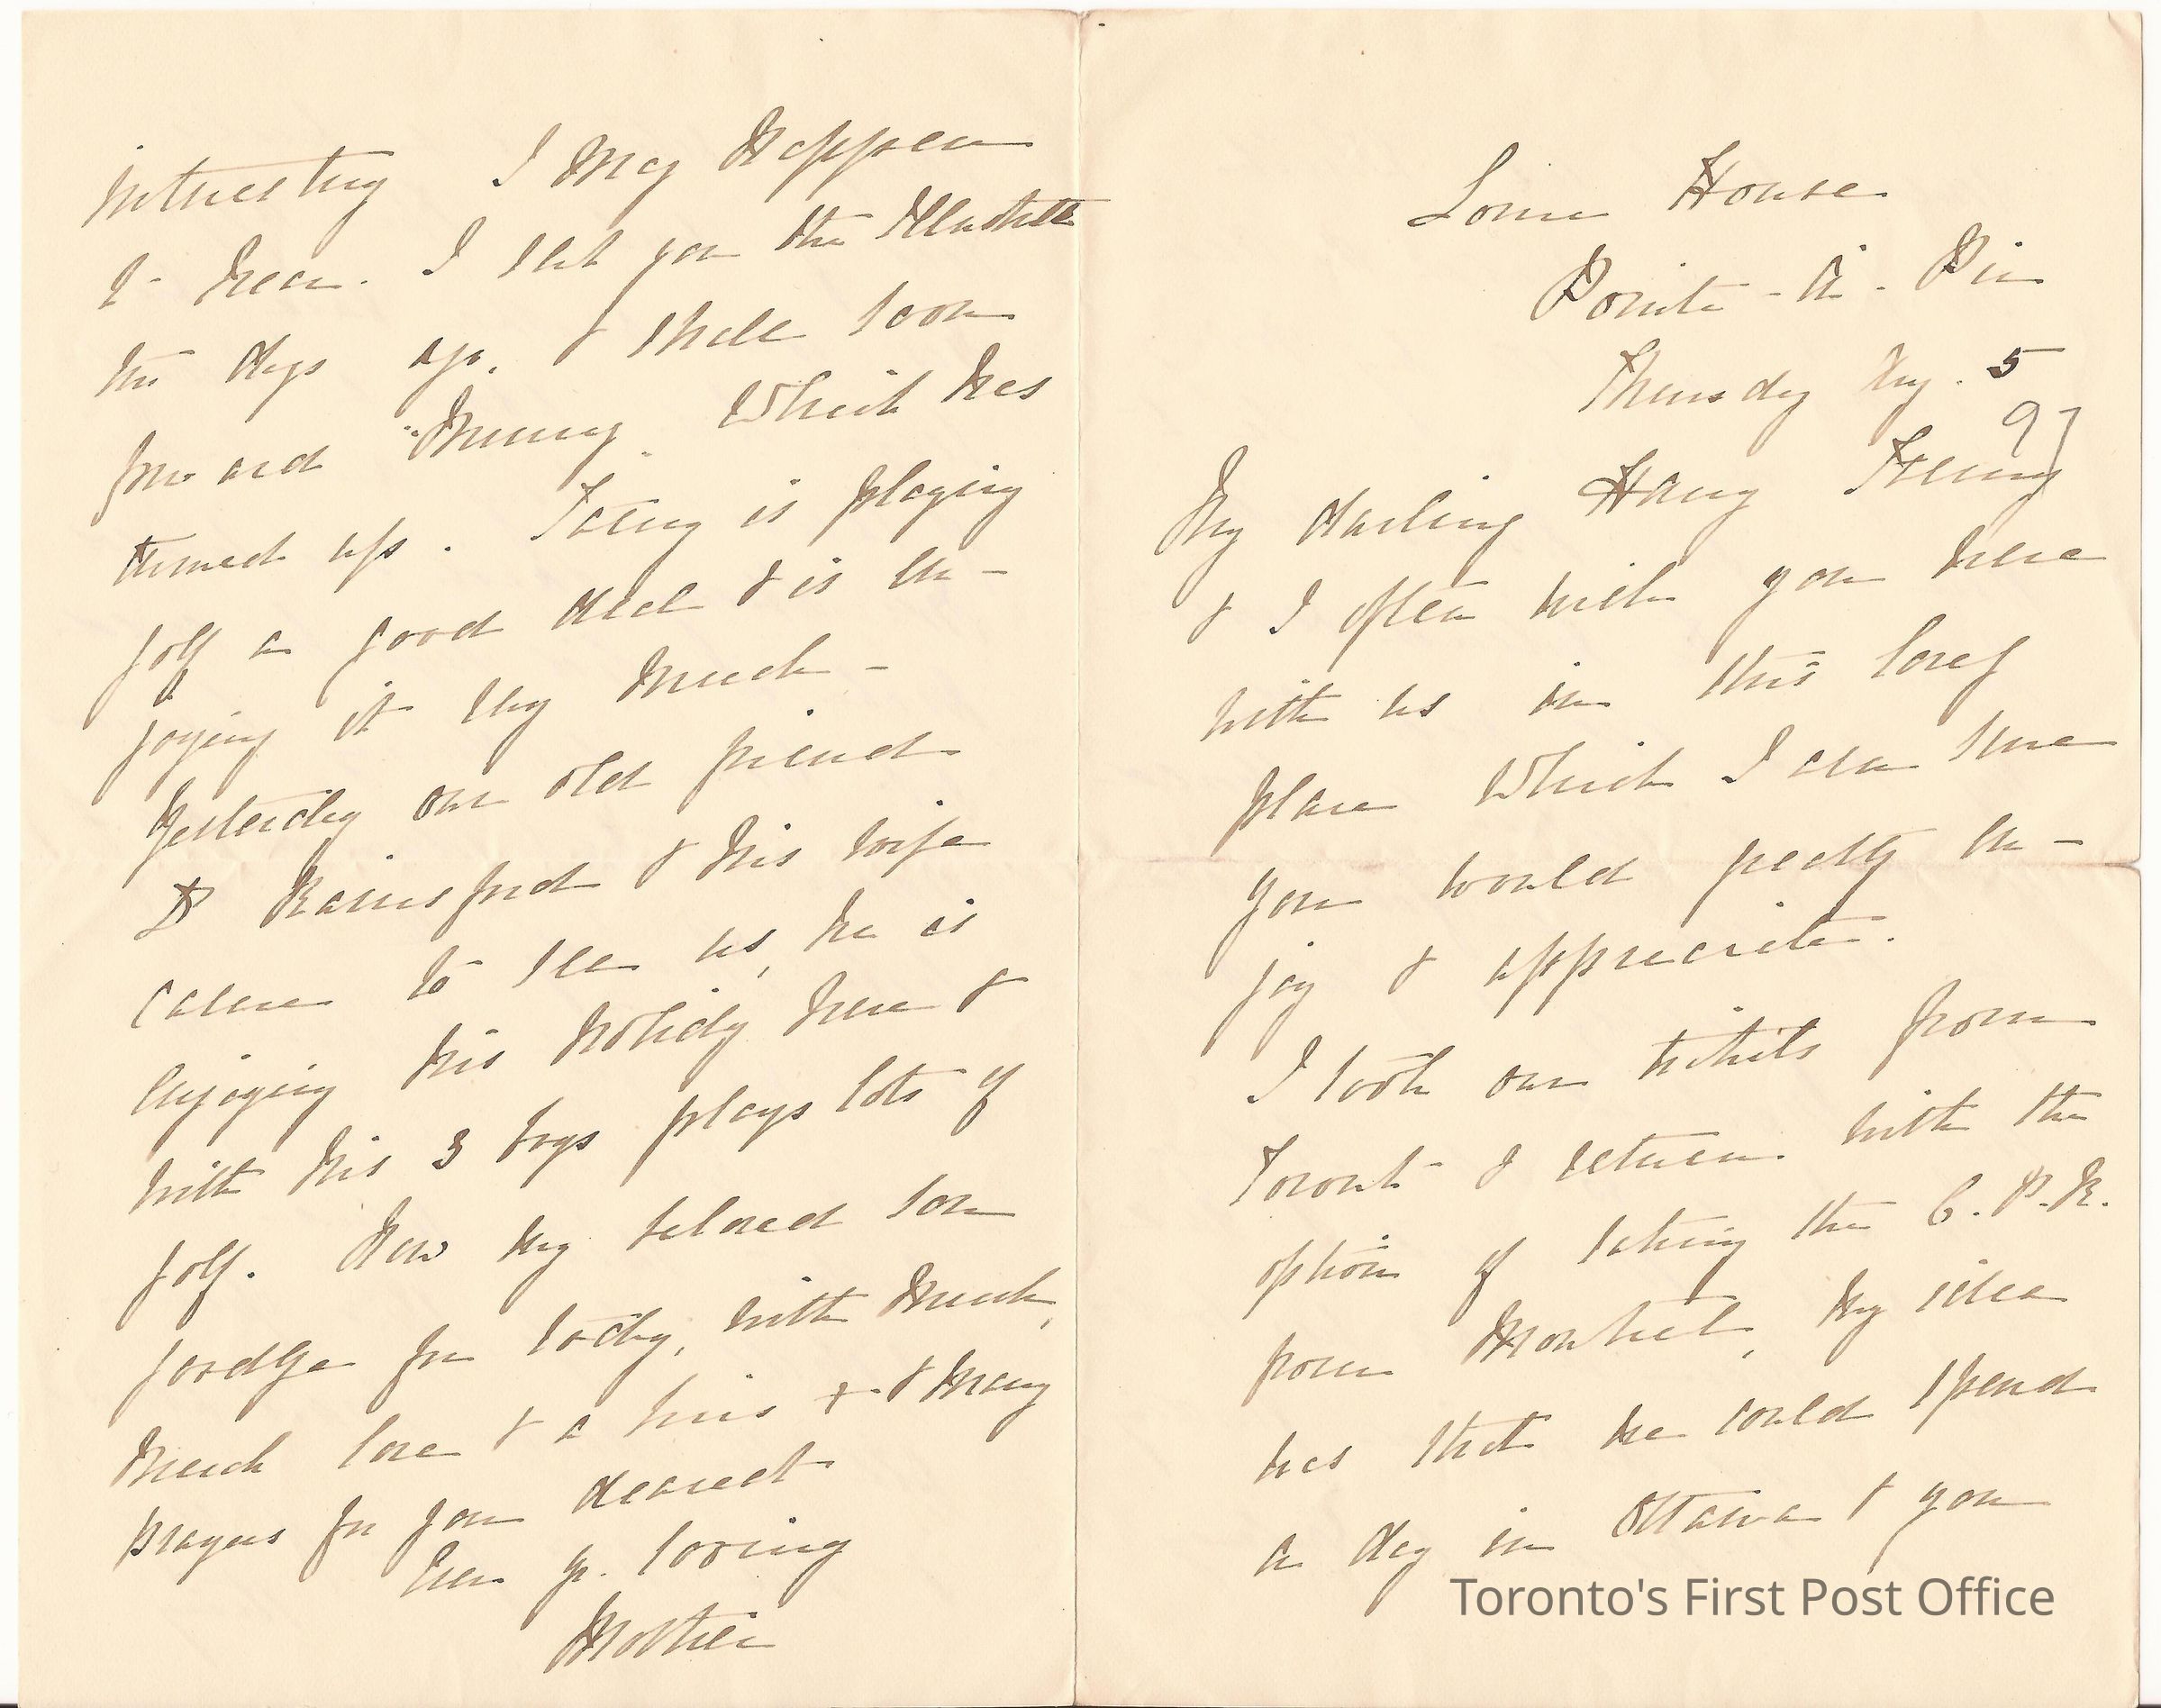 Lorne House
Pointe-à-Pic
Thursday Aug. 5
97
My darling Harry Fanny
& I often wish you were
with us in this lovely
place which I am sure
you would greatly en-
joy & appreciate.
I took our tickets from
Toronto & return with the
option of taking the C.P.R.
from Montreal, my idea
was that we could spend
a day in Ottawa & you
interesting I may happen
to hear. I sent you the
two days ago, & shall soon
forward "Munsey" which has
turned up. is playing
golf a good deal & is en-
joying it very much -
Yesterday our old friend
Dr Rainsford & his wife
came to see us, he is
enjoying his holiday here &
with his 3 boys plays lots of
golf. Now my beloved son
goodbye for today, with much,
much love & a kiss + & many
prayers for you dearest
Ever yr. loving
Mother
Toronto's First Post Office